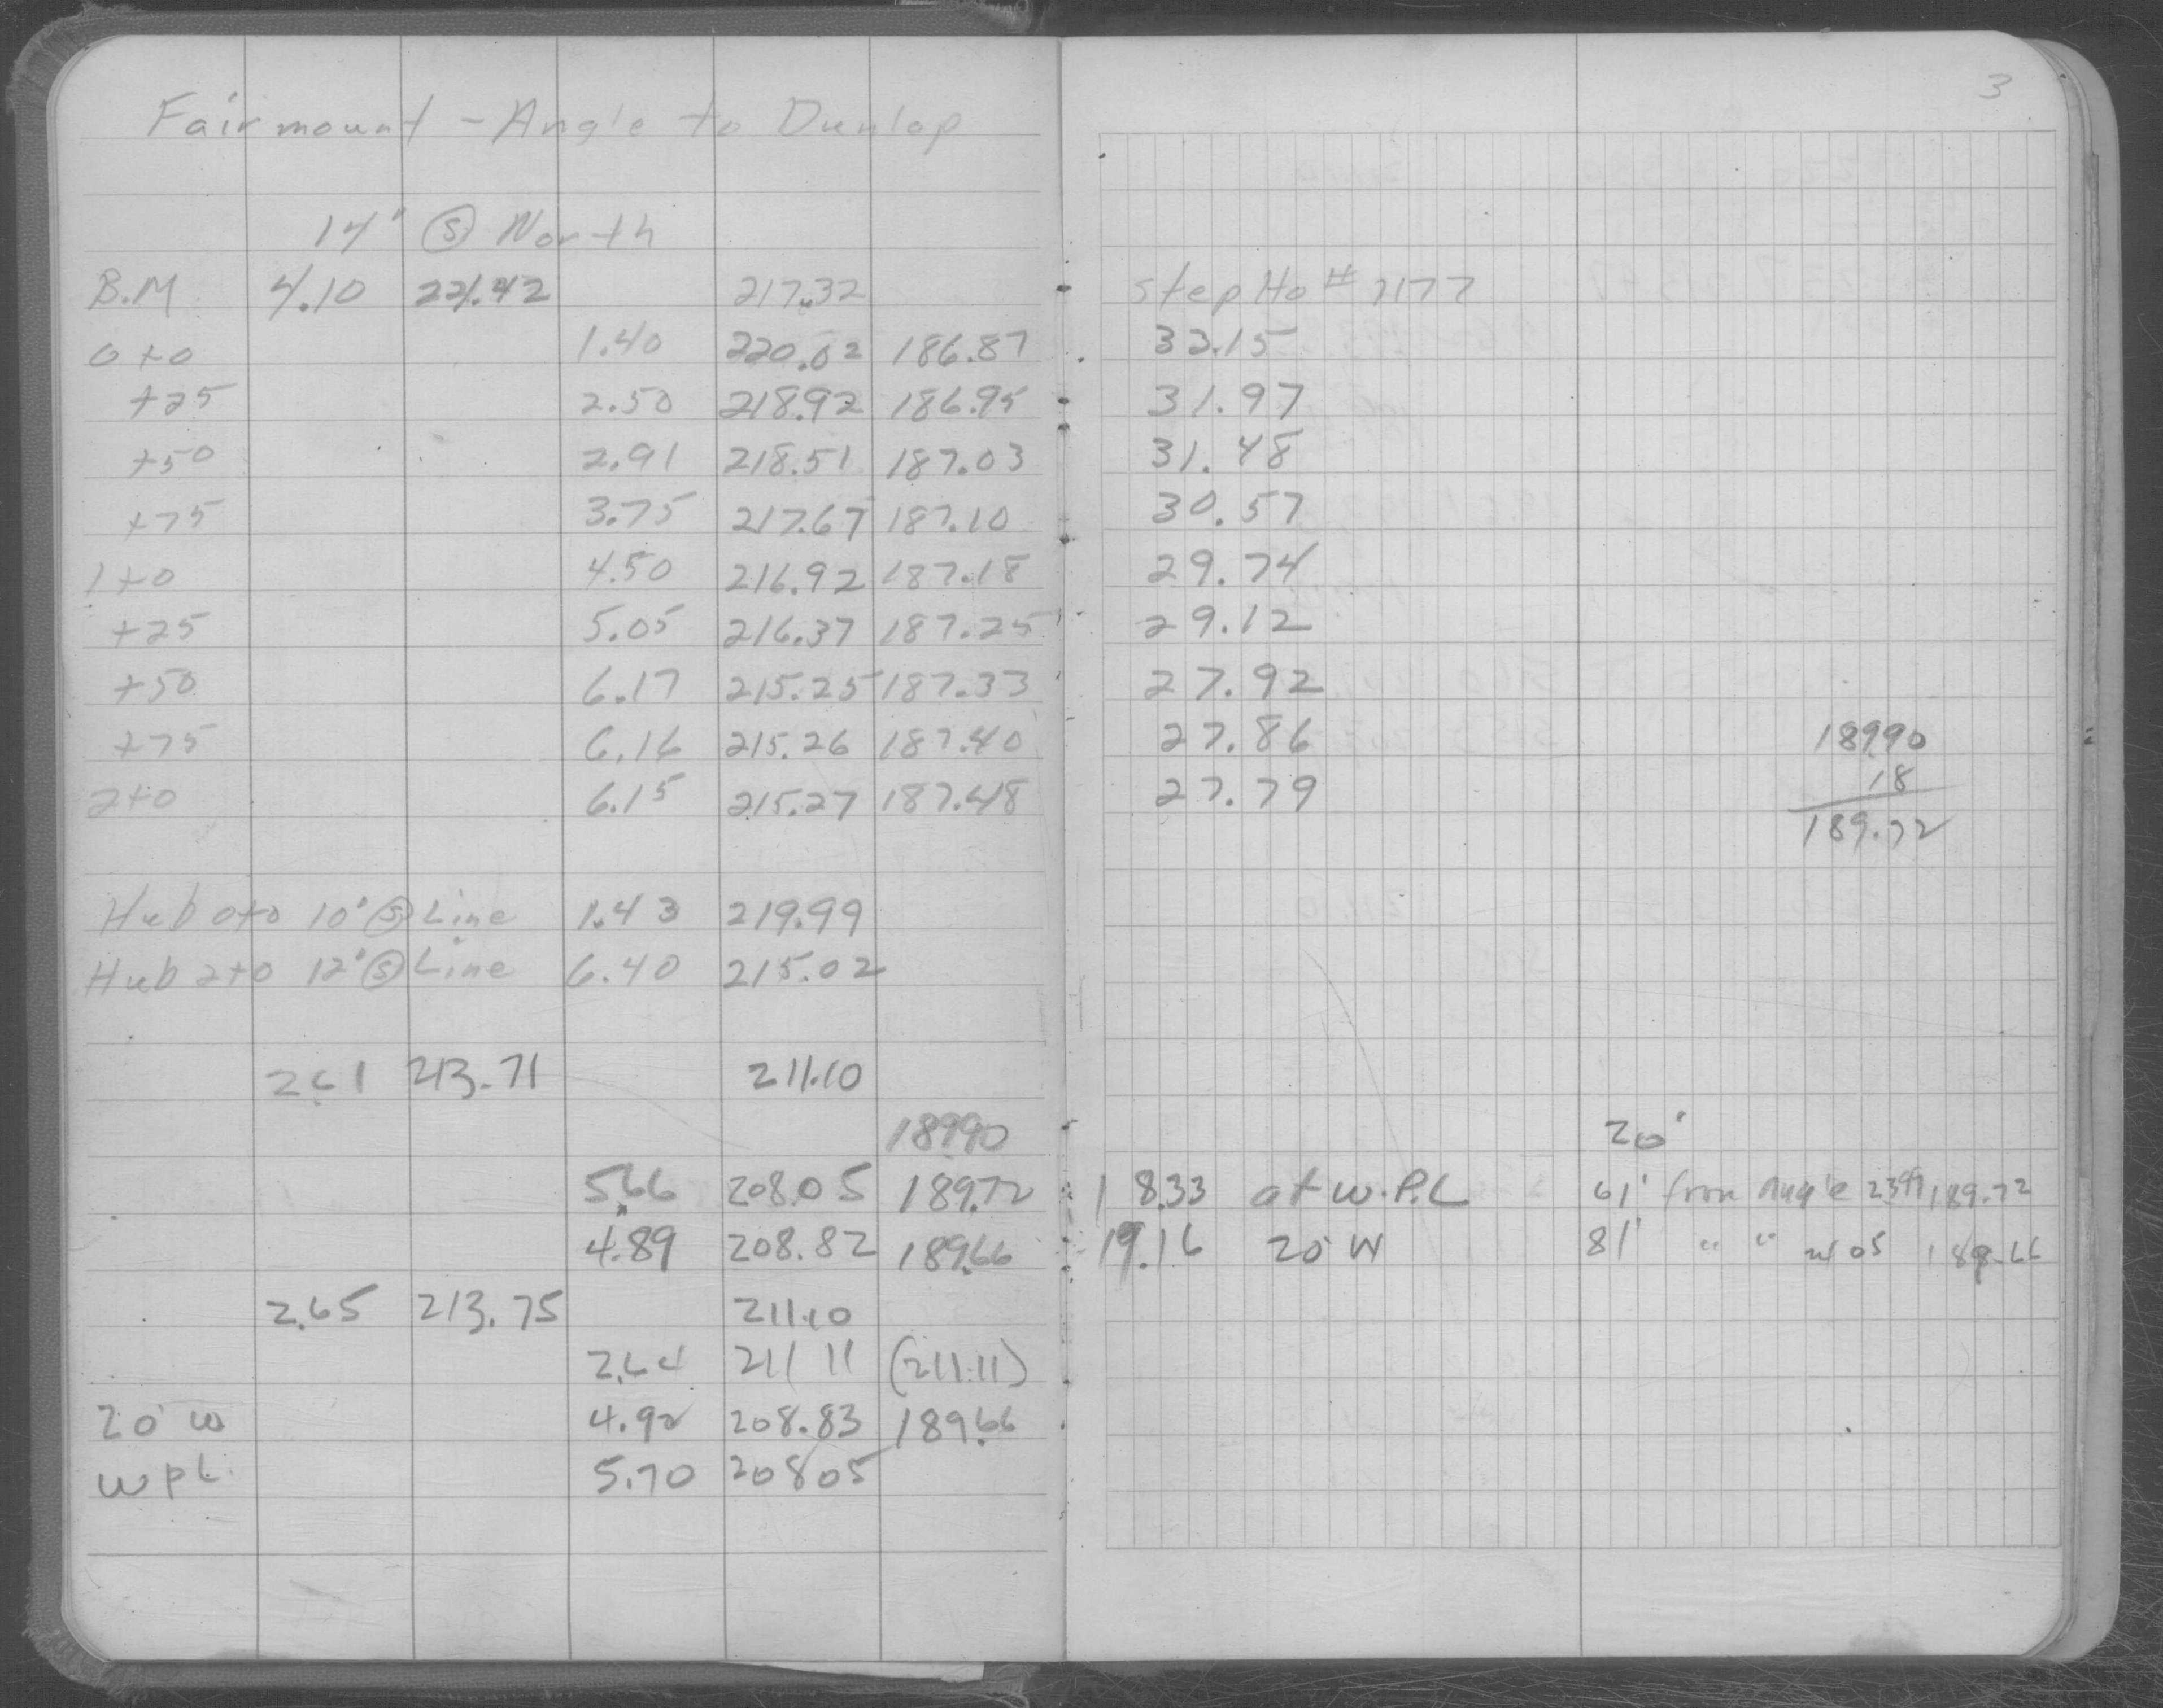 3
Fairmount - Angle to Dunlap
14' Ⓢ North
B.M 4.10 221.42 217.32 step Ho # 7177
0+0 1.40 220.02 186.87 33.15
+25 2.50 218.92 186.95 31.97
+50 2.91 218.51 187.03 31.48
+75 3.75 217.67 187.10 30.57
1+0 4.50 216.92 187.18 29.74
+25 5.05 216.37 187.25 29.12
+50 6.17 215.25 187.33 27.92
+75 6.16 215.26 187.40 27.86 189.90
2+0 6.15 215.27 187.48 27.79 18
189.72
Hub 0+0 10' Ⓢ Line 1.43 219.99
Hub 2+0 12' Ⓢ Line 6.40 215.02
2.61 213.71 211.10
189.90 20'
5.66 208.05 189.72 18.33 at W.P.L 61' from Angle 189.72
4.89 208.82 189.66 19.16 20 W 81' " " 189.66
2.65 213.75 211.10
2.64 211 11 (211.11)
20 W 4.92 208.83 189.66
W P L 5.70 208 05